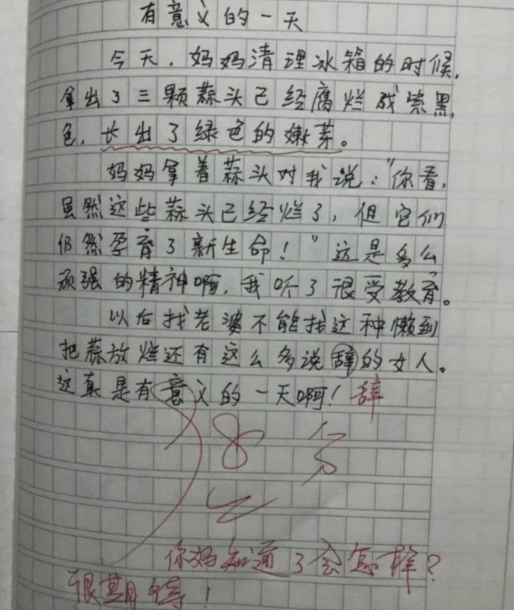 有意义的一天
今天，妈妈清理冰箱的时候，
拿出了三颗蒜头已经腐烂成紫黑
色，长出了绿色的嫩芽。
妈妈拿着蒜头对我说："你看，
虽然这些蒜头已经烂了，但它们
仍然孕育了新生命！"这是多么
顽强的精神啊，我听了很受教育。
以后找老婆不能找这种懒到
把蒜放烂还有这么多说辞的女人。
这真是有意义的一天啊！辞
8分
你妈知道了会怎样？
很期待！